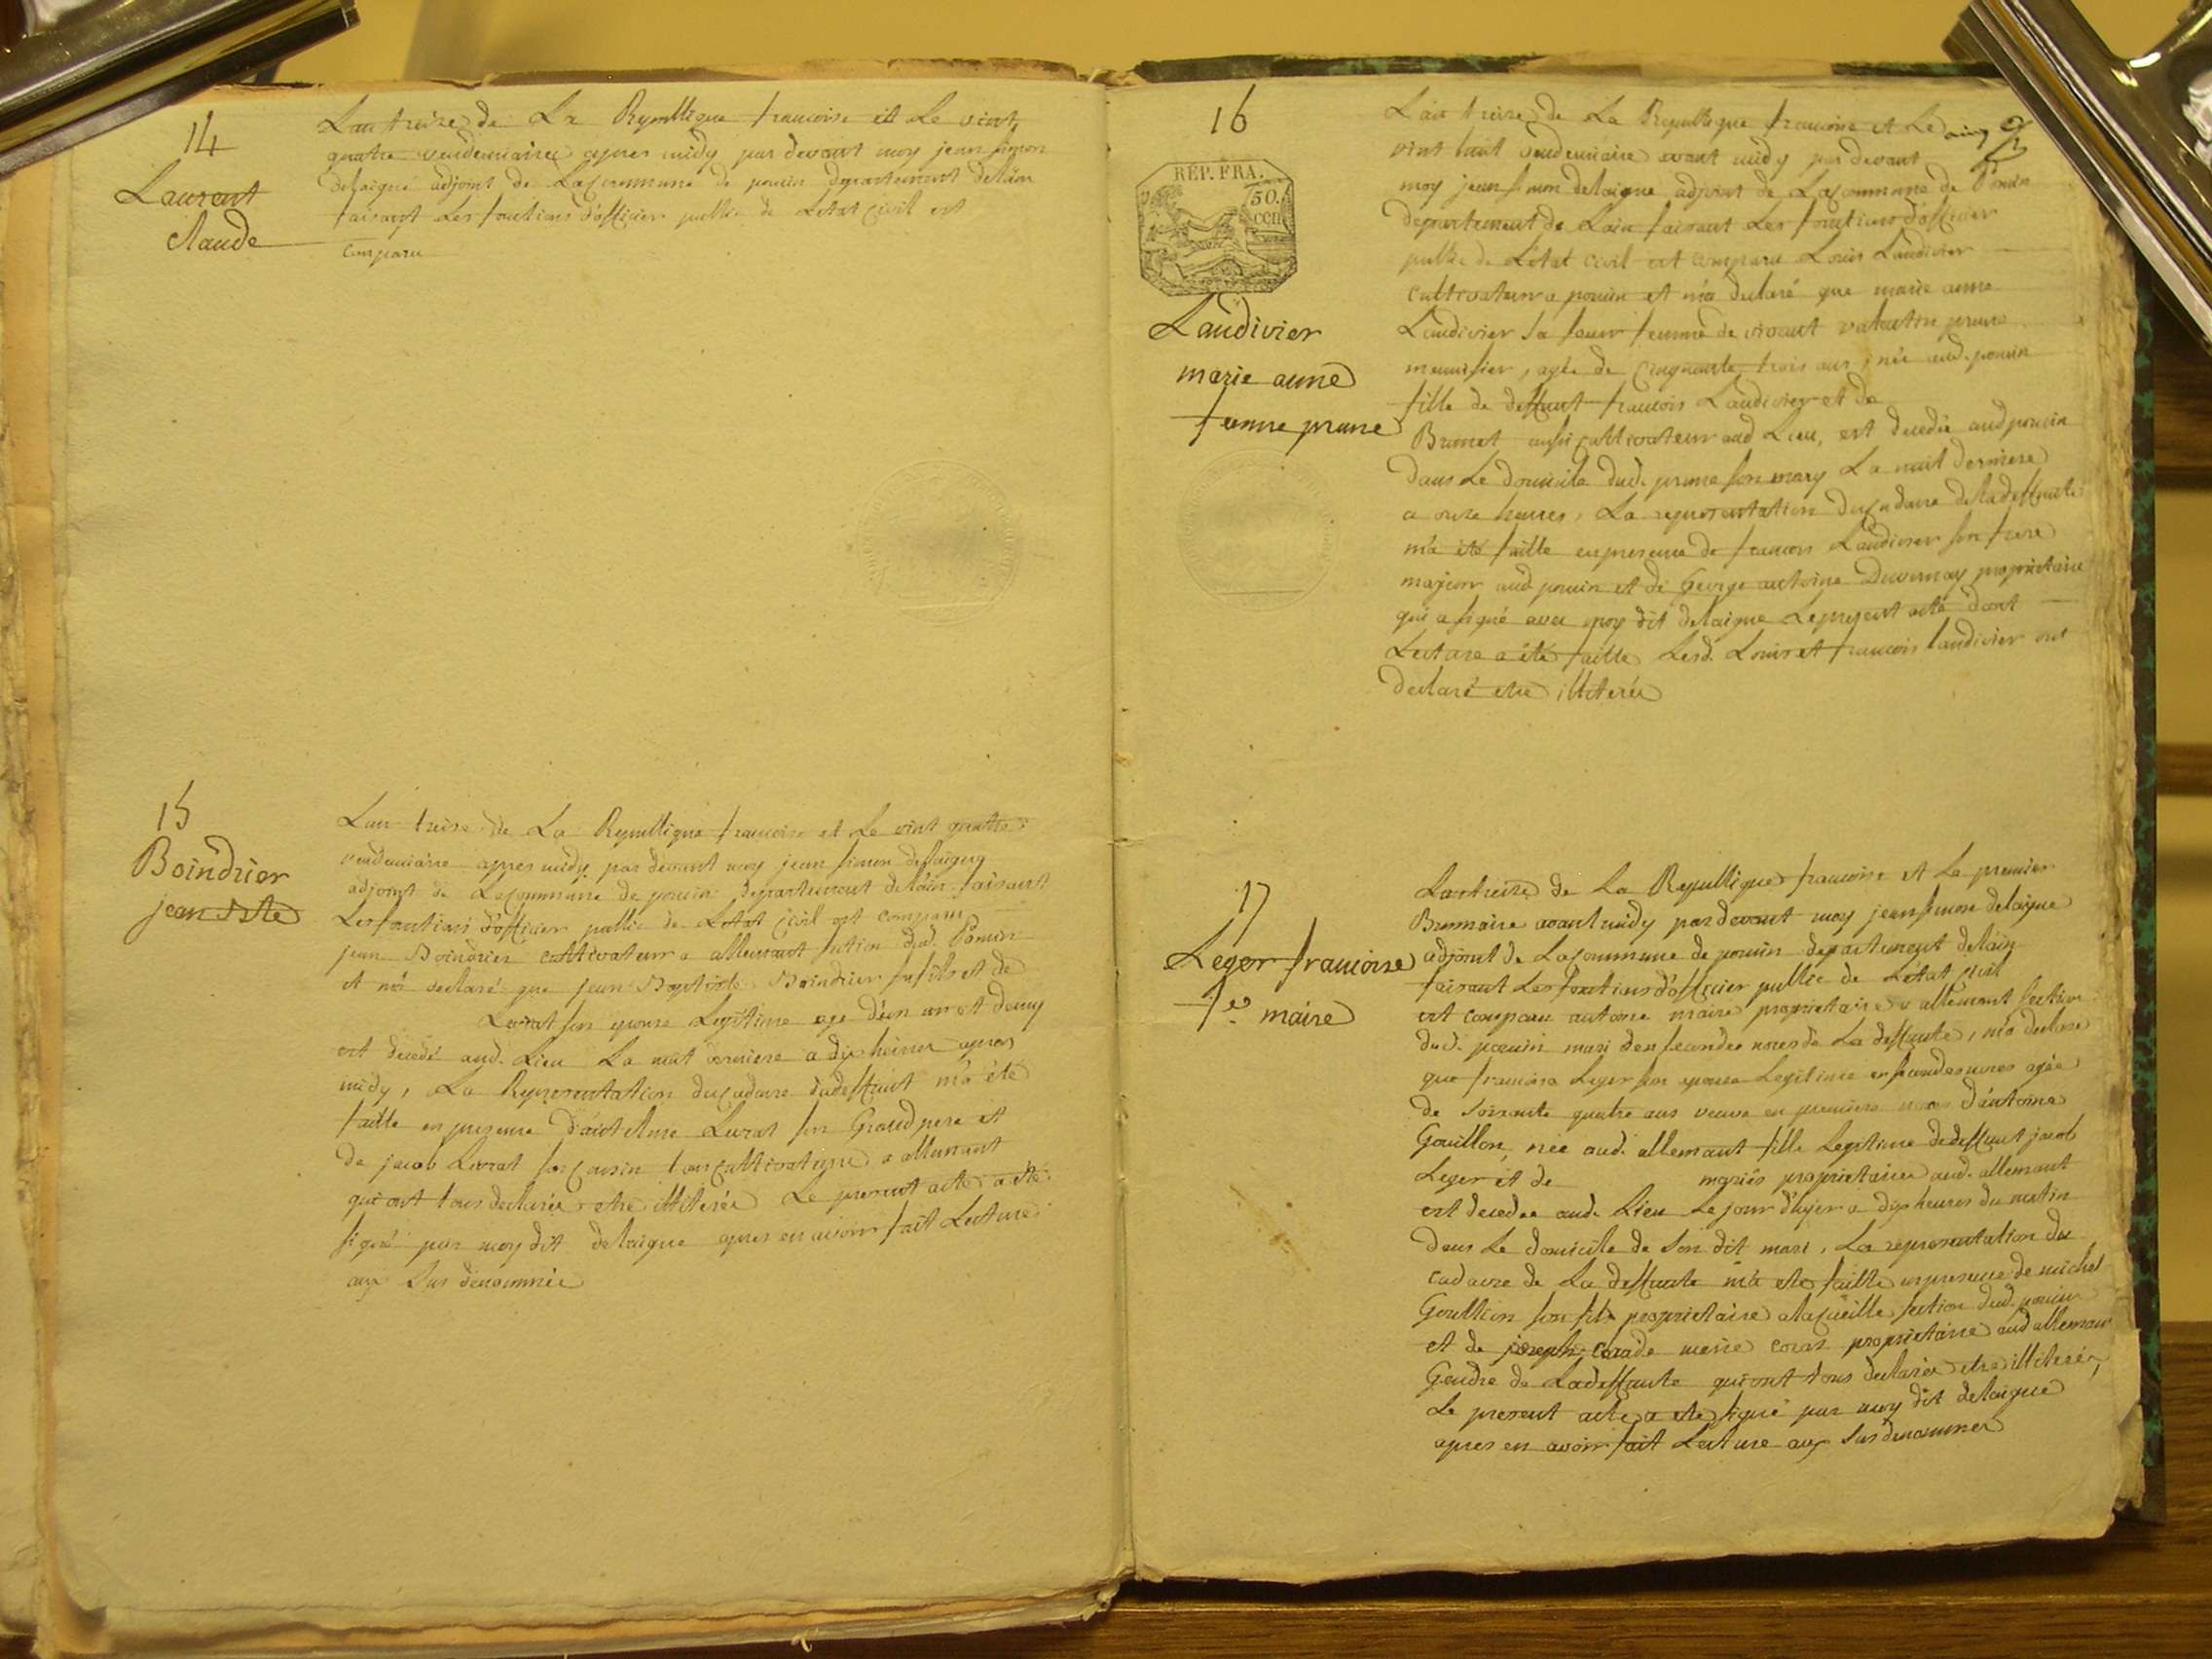 14
Laurent
claude
L'an treize de La Republique francoise et Le vint
quatre vendemiaire apres midy par devant moy jean simon
delaigue adjoint de La Commune de pouin departement de l'ain
faisant Les fonctions d'officier public de Letat civil est
comparu
15
Boindrier
jean Bte
L'an treise de La Republique francoise et Le vint quatre
vendemiaire apres midy par devant moy jean simon delaigue
adjoint de La Commune de pouin departement de l'ain faisant
Les fontions d'officier public de Letat civil est comparu
jean Boindrier cultivateur a allemant section dud. Pouin
et m'a declaré que jean Baptiste Boindrier sn fils et de
Livrat son epouse Legitime age d'un an et demy
est decedé aud. Lieu La nuit derniere a dix heures apres
midy, La Representation du cadavre dudeffunt m'a été
faitte en presence d'antelme Livrat son Grand pere et
de jacob Livrat son cousin tous cultivateurs a allemant
qui ont tous declarés etre illiterés Le present acte a été
signé par moy dit delaigue apres en avoir fait Lecture
aux sus denommés
16
RÉP. FRA.
50.
cen
Laudivier
marie anne
femme prune
L'an treize de La Republique francoise et Le
vint huit vendemiaire avant midy par devant
moy jean simon delaigue adjoint de La commune de Pouin
departement de L'ain faisant Les fonctions d'officier
public de L'etat civil est comparu Louis Laudivier
cultivateur a pouin et m'a declaré que marie anne
Laudivier sa soeur femme de vivant valentin prune
meunisier, agée de cinquante trois ans, née aud. pouin
fille de deffunt francois Laudivier et de
Brunet aussi cultivateur aud Lieu, est decedée aud pouin
dans Le domicile dud. prune son mary La nuit derniere
a onze heures, La representation du cadavre de la deffunte
m'a été faitte en presence de francois Laudivier son frere
maçon aud pouin et de George antoine Duvernay proprietaire
qui a signé avec moy dit delaigue Le present acte dont
Lecture a été faitte Lesd. Louis et francois laudivier ont
declaré etre illiterés
17
Leger francoise
fe. maire
L'an treize de La Republique francoise et Le premier
Brumaire avant midy par devant moy jean simon delaigue
adjoint de La commune de pouin departement de l'ain
faisant Les fontions d'officier public de L'etat civil
est comparu antoine maire proprietaire a allemant section
dud. pouin mari d'en secondes noces de La deffunte, m'a declaré
que francoise Leger son epouse Legitime en secondes noces agée
de soixante quatre ans veuve en premiere noces d'antoine
Gouillon, née aud. allemant fille Legitime de deffunt jacob
Leger et de mariés proprietaires aud. allemant
est decedée aud. Lieu Le jour d'hyer a dix heures du matin
dans Le domicile de son dit mari, La representation du
cadavre de La deffunte m'a eté faitte en presence de michel
Goullion son fils proprietaire section dud. pouin
et de joseph proprietaire aud alleman
Gendre de La deffunte qui ont tous declarés etre illiterés,
Le present acte a eté signé par moy dit delaigue
apres en avoir fait Lecture aux sus denommés